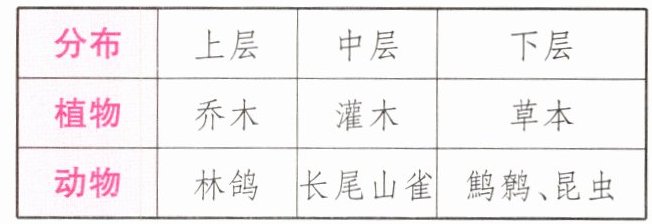 分布 上层 中层 下层
植物 乔木 灌木 草本
动物 林鸽 长尾山雀 鹪鹩、昆虫